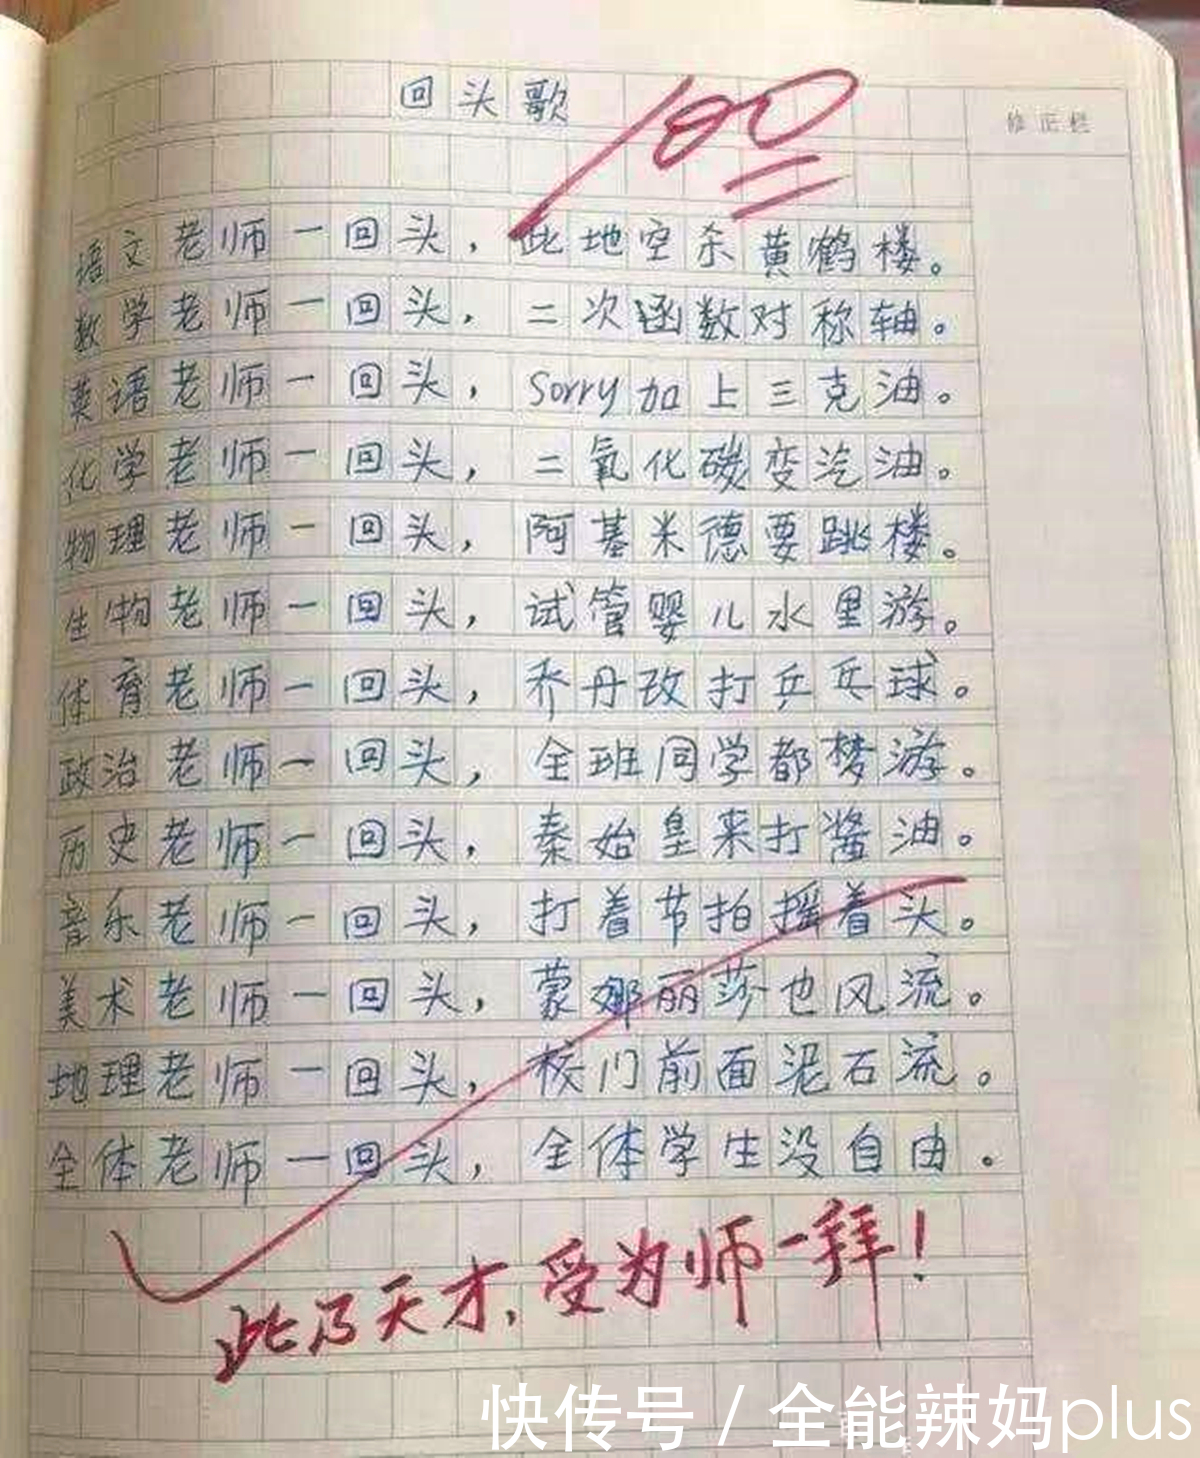 回头歌
100
修正栏
语文老师一回头，此地空杀黄鹤楼。
数学老师一回头，二次函数对称轴。
英语老师一回头，Sorry加上三克油。
化学老师一回头，二氧化碳变汽油。
物理老师一回头，阿基米德要跳楼。
生物老师一回头，试管婴儿水里游。
体育老师一回头，乔丹改打乒乓球。
政治老师一回头，全班同学都梦游。
历史老师一回头，秦始皇来打酱油。
音乐老师一回头，打着节拍摇着头。
美术老师一回头，蒙娜丽莎也风流。
地理老师一回头，校门前面泥石流。
全体老师一回头，全体学生没自由。
此乃天才，受为师一拜！
快传号 / 全能辣妈plus